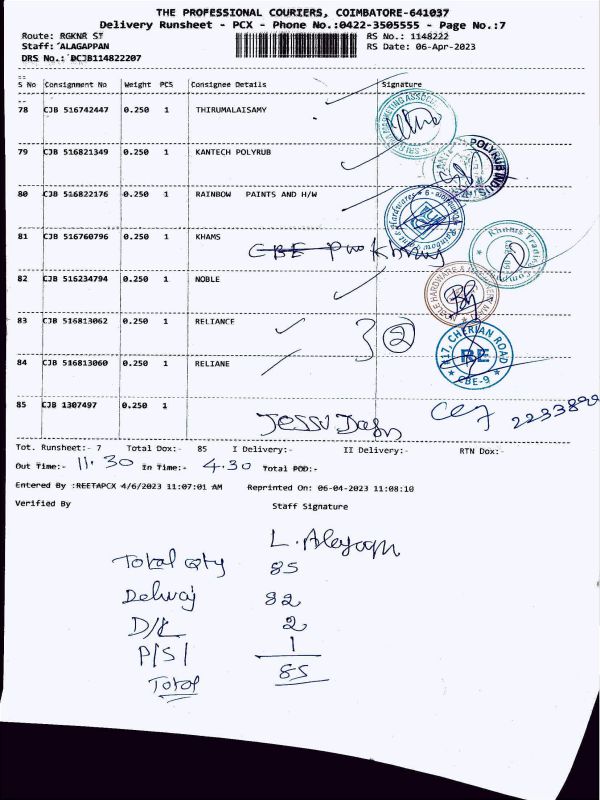 THE PROFESSIONAL COURIERS, COIMBATORE-641037
Delivery Runsheet - PCX - Phone No.:0422-3505555 - Page No.:7
Route: RGKNR ST RS No.: 1148222
Staff: ALAGAPPAN RS Date: 06-Apr-2023
DRS No.: DCJB114822207
S No Consignment No Weight PCS Consignee Details Signature
78 CJB 516742447 0.250 1 THIRUMALAISAMY
79 CJB 516821349 0.250 1 KANTECH POLYRUB
80 CJB 516822176 0.250 1 RAINBOW PAINTS AND H/W
81 CJB 516760796 0.250 1 KHAMS
CBE
82 CJB 516234794 0.250 1 NOBLE
83 CJB 516813062 0.250 1 RELIANCE
2
84 CJB 516813060 0.250 1 RELIANE
417, CHERIAN ROAD
RBE
CBE-9
85 CJB 1307497 0.250 1
Tot. Runsheet:- 7 Total Dox:- 85 I Delivery:- II Delivery:- RTN Dox:-
Out Time:- 11.30 In Time:- 4.30 Total POD:-
Entered By :REETAPCX 4/6/2023 11:07:01 AM Reprinted On: 06-04-2023 11:08:10
Verified By Staff Signature
Total qty 85
82
D/L 2
P/S/ 1
Total 85